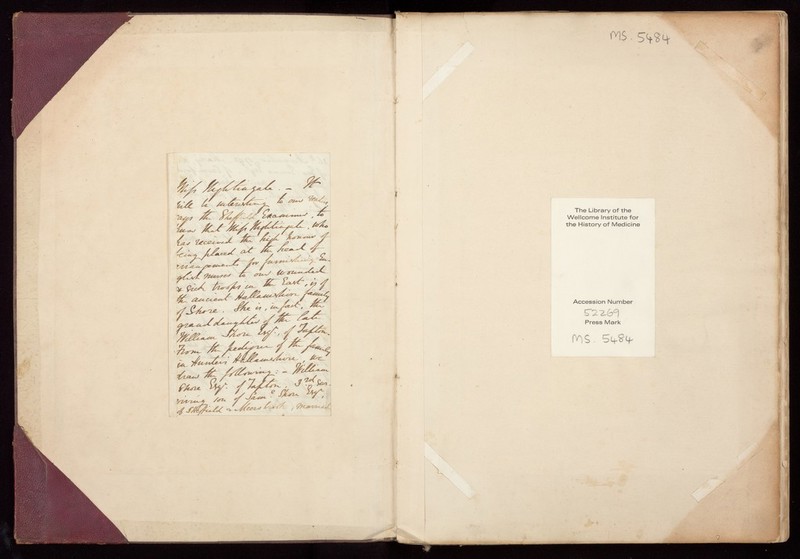 Miss Nightingale. – It
will be interesting to our
says the Sheffield Examiner, to
learn that Miss Nightingale, who
has received the high honour of
being placed at the head of
arrangements for furnishing En-
glish nurses to our wounded
& sick troops in the East, is of
the ancient Hallamshire family
of Shore. She is, in fact, the
granddaughter of the late
William Shore Esqr. of Tapton.
From the pedigree of the family
in Hunter's Hallamshire, we
draw the following: – William
Shore Esqr of Tapton, 3rd sur-
viving son of Saml Shore Esqr
of Sheffield & Meersbrook, married
MS. 5484
The Library of the
Wellcome Institute for
the History of Medicine
Accession Number
52269
Press Mark
MS. 5484